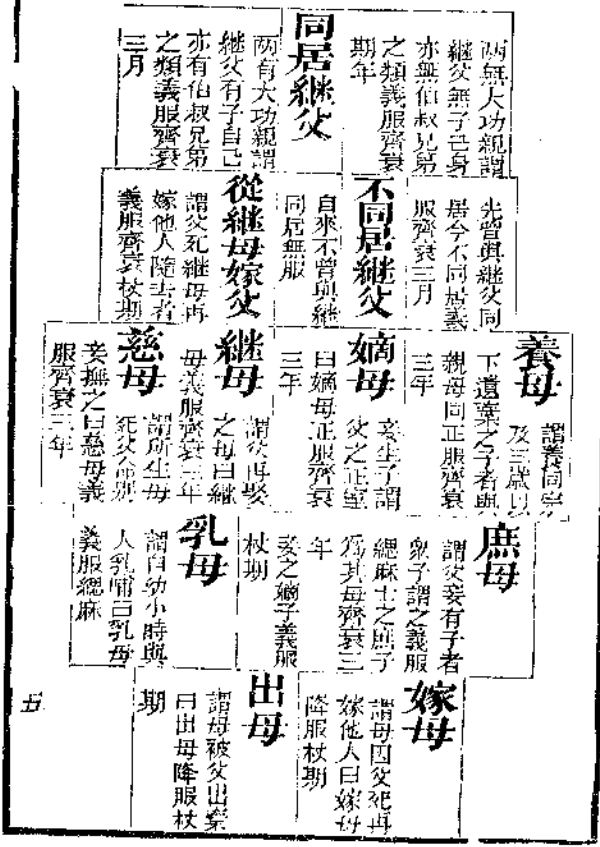 同居継父
两無大功親謂
継父無子己身
亦無伯叔兄弟
之類義服齊衰
期年
两有大功親謂
継父有子自己
亦有伯叔兄弟
之類義服齊衰
三月
不同居継父
先曽與継父同
居今不同居義
服齊衰三月
自來不曽與継
同居無服
從継母嫁父
謂父死継母再
嫁他人隨去者
義服齊衰杖期
養母
謂養同宗
及三歳以
下遺棄之子者與
親母同正服齊衰
三年
嫡母
妾生子謂
父之正室
曰嫡母正服齊衰
三年
継母
謂父再娶
之母曰継
母義服齊衰三年
慈母
謂所生母
死父命别
妾撫之曰慈母義
服齊衰三年
庶母
謂父妾有子者
衆子謂之義服
緦麻士之庶子
爲其母齊衰三
年
妾之嫡子義服
杖期
乳母
謂自幼小時與
人乳哺曰乳母
義服緦麻
嫁母
謂母因父死再
嫁他人曰嫁母
降服杖期
出母
謂母被父出棄
曰出母降服杖
期
五